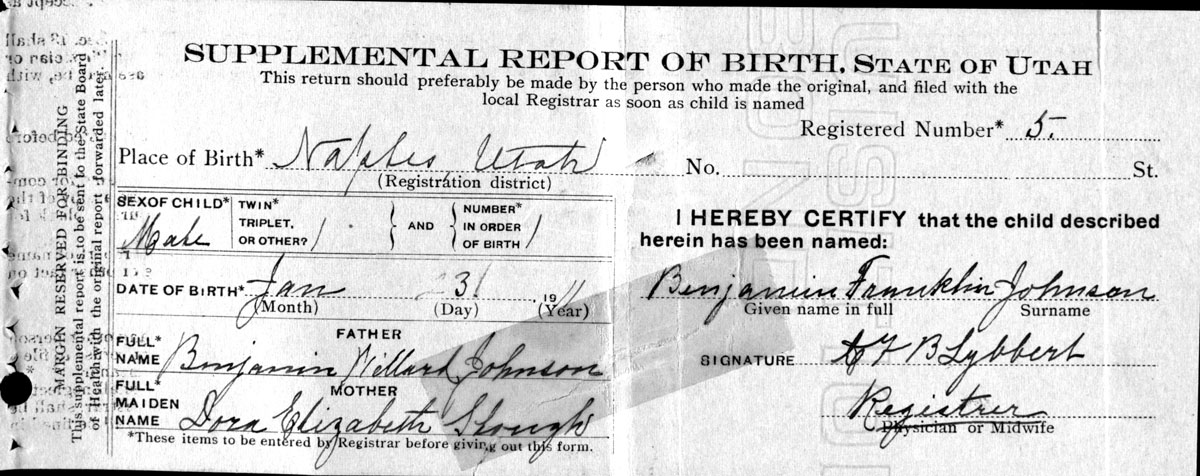 SUPPLEMENTAL REPORT OF BIRTH, STATE OF UTAH
This return should preferably be made by the person who made the original, and filed with the
local Registrar as soon as child is named
Registered Number* 5.
Place of Birth* Naples Utah No. St.
(Registration district)
SEX OF CHILD* Male
TWIN* TRIPLET, OR OTHER?
AND
NUMBER* IN ORDER OF BIRTH
DATE OF BIRTH* Jan 31 1911
(Month) (Day) (Year)
FATHER
FULL* NAME Benjamin Willard Johnson
MOTHER
FULL* MAIDEN NAME Dora Elizabeth
*These items to be entered by Registrar before giving out this form.
I HEREBY CERTIFY that the child described
herein has been named:
Benjamin Franklin Johnson
Given name in full Surname
SIGNATURE B Lybbert
Registrer
Physician or Midwife
MARGIN RESERVED FOR BINDING
This supplemental report is to be sent to the State Board
of Health with the original report forwarded later